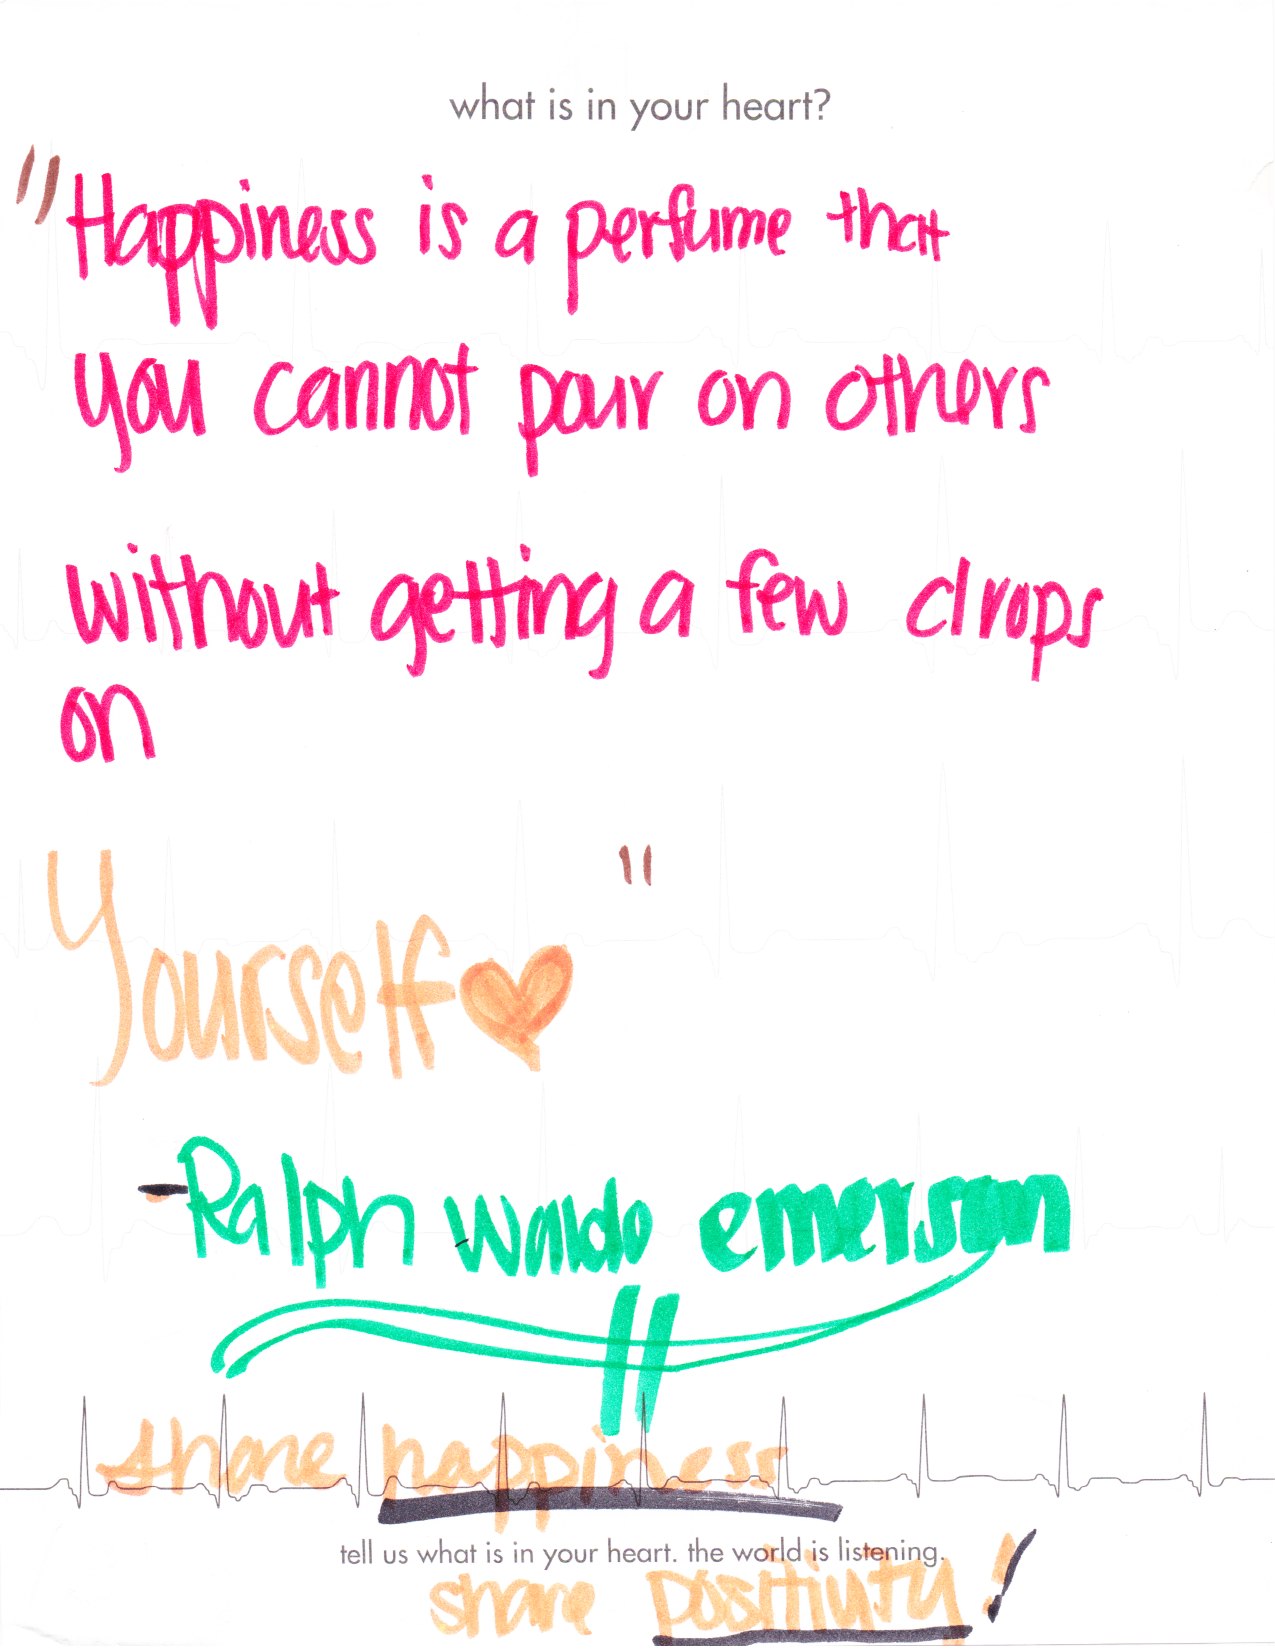 what is in your heart?
"Happiness is a perfume that
you cannot pour on others
without getting a few drops
on
"
Yourself
-Ralph waldo emerson
share happiness
tell us what is in your heart. the world is listening.
share positivity!